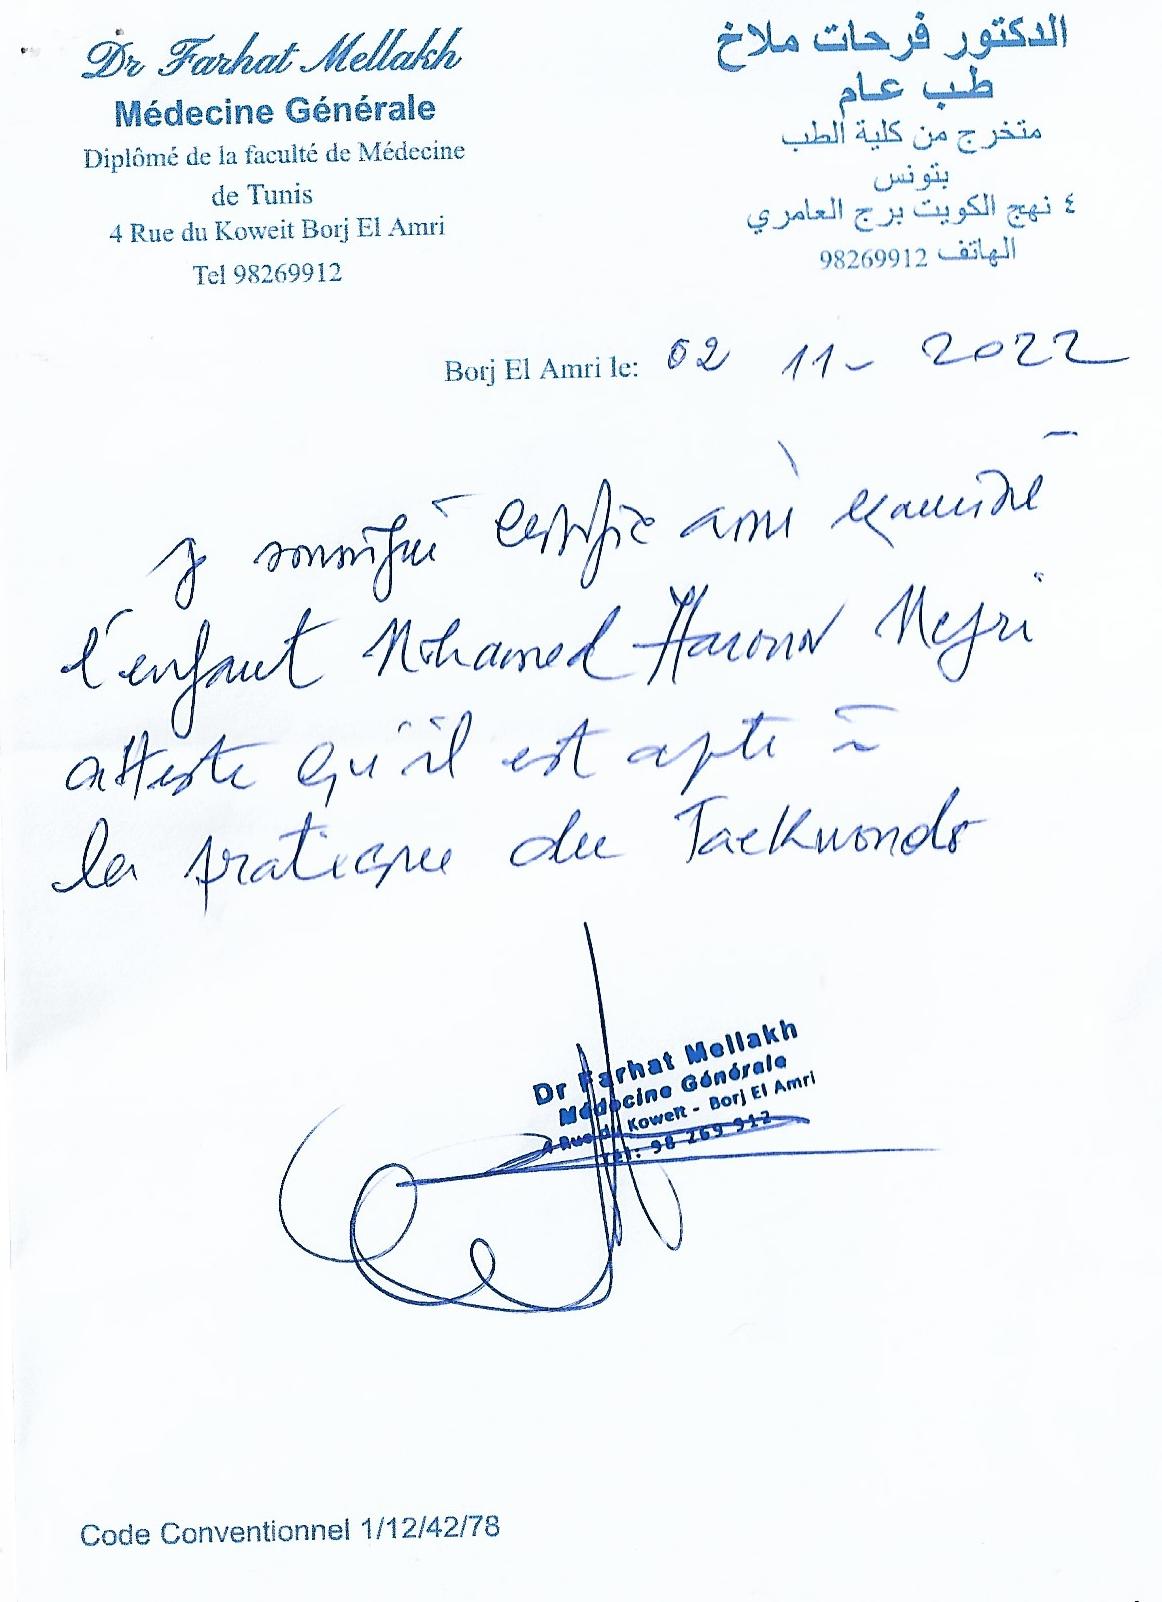 Dr Farhat Mellakh
Médecine Générale
Diplômé de la faculté de Médecine
de Tunis
4 Rue du Koweit Borj El Amri
Tel 98269912
الدكتور فرحات ملاخ
طب عام
متخرج من كلية الطب
بتونس
٤ نهج الكويت برج العامري
الهاتف 98269912
Borj El Amri le: 02 11- 2022
soussigné certifie avoir examiné
l'enfant Mohamed Haroun Mejri
atteste qu'il est apte à
la pratique du Taekwondo
Dr Farhat Mellakh
Médecine Générale
4 Rue du Koweit - Borj El Amri
Tél: 98 269 912
Code Conventionnel 1/12/42/78